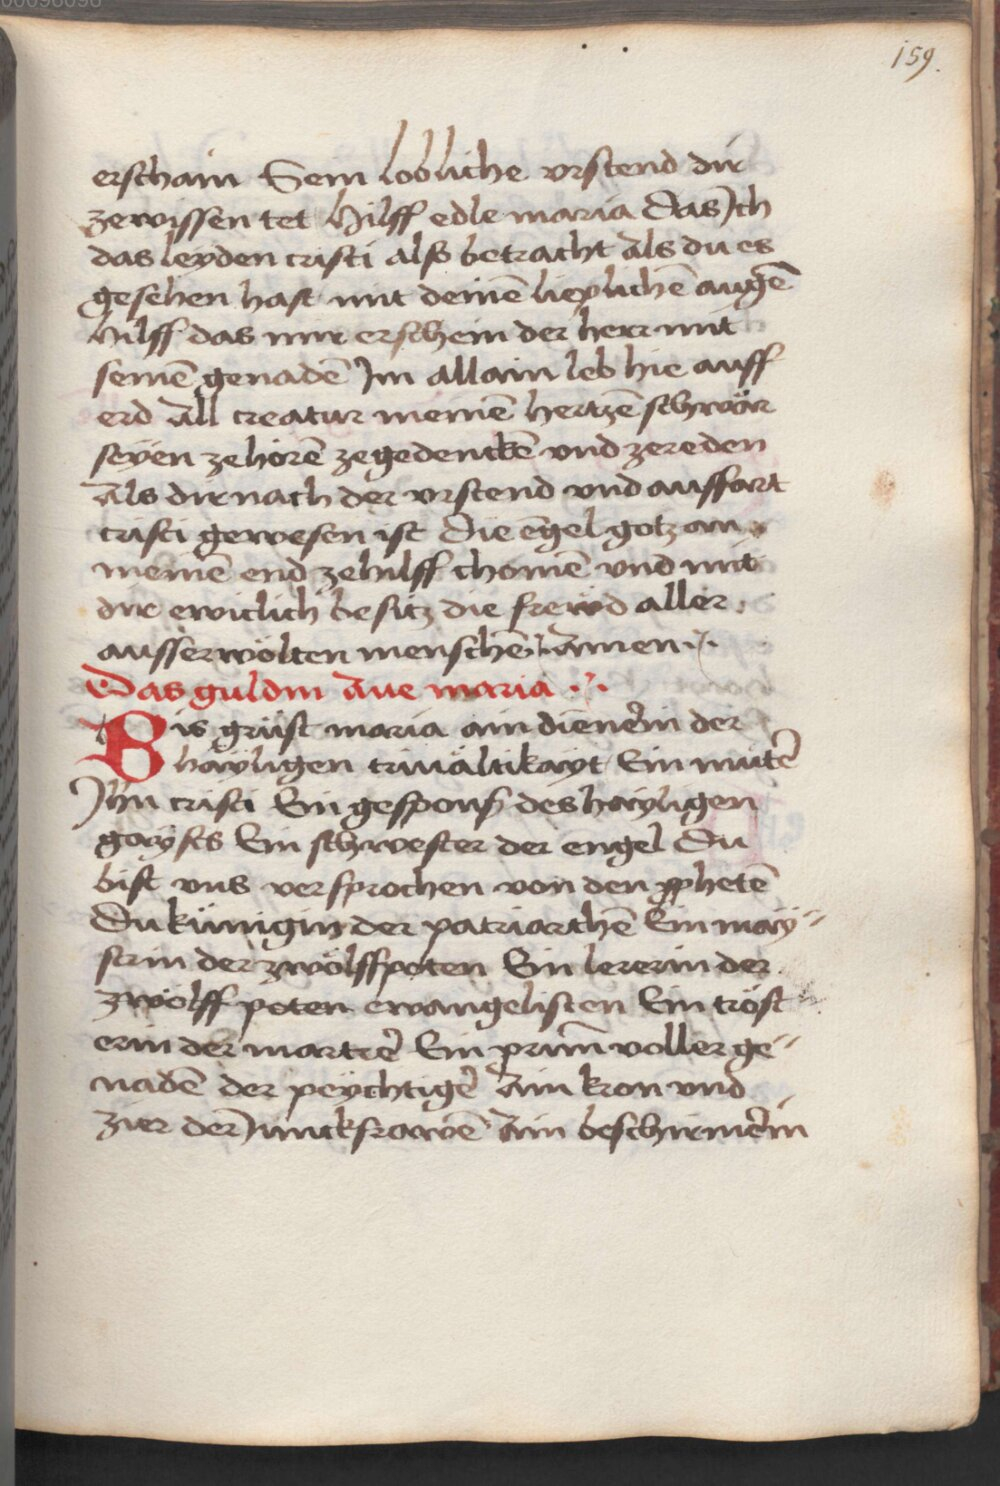 00096098
159.
erschain Sein lobliche vrstend dir
zewissen tet Hilff edle maria Das Jch
das leyden cristi alß betracht Als du es
gesehen hast mit deinē lieplichē augē
hilff das mir erschein der herr mit
seinē genadē Jm allain leb hie auff
erd All creatur meinē hertzē schwär
seÿen zehörē zegedenckē vnd zereden
Als dir nach der vrstend vnd auffart
cristi gewesen ist Die engel gotz an
meinē end zehilff chomē vnd mit
dir ewiclich besitz die frewd aller
ausserwölten menschē Amen
Das guldin Aue maria
Bis grüst maria ain dienerin der
hayligen triuältikayt Ein muter̄
Jhu cristi Ein gespons des hayligen
gaysts Ein schwester der engel Du
bist vns versprochen von den ꝓphetē
Du künigin der patriarchē Ein may-
strin der zwölffpoten Ein lererin der
zwölff poten ewangelisten Ein tröst-
erin der martrē Ein prūn voller ge-
nadē der peychtigē Ain kron vnd
zier der Junckfrawē Ain beschirmerin